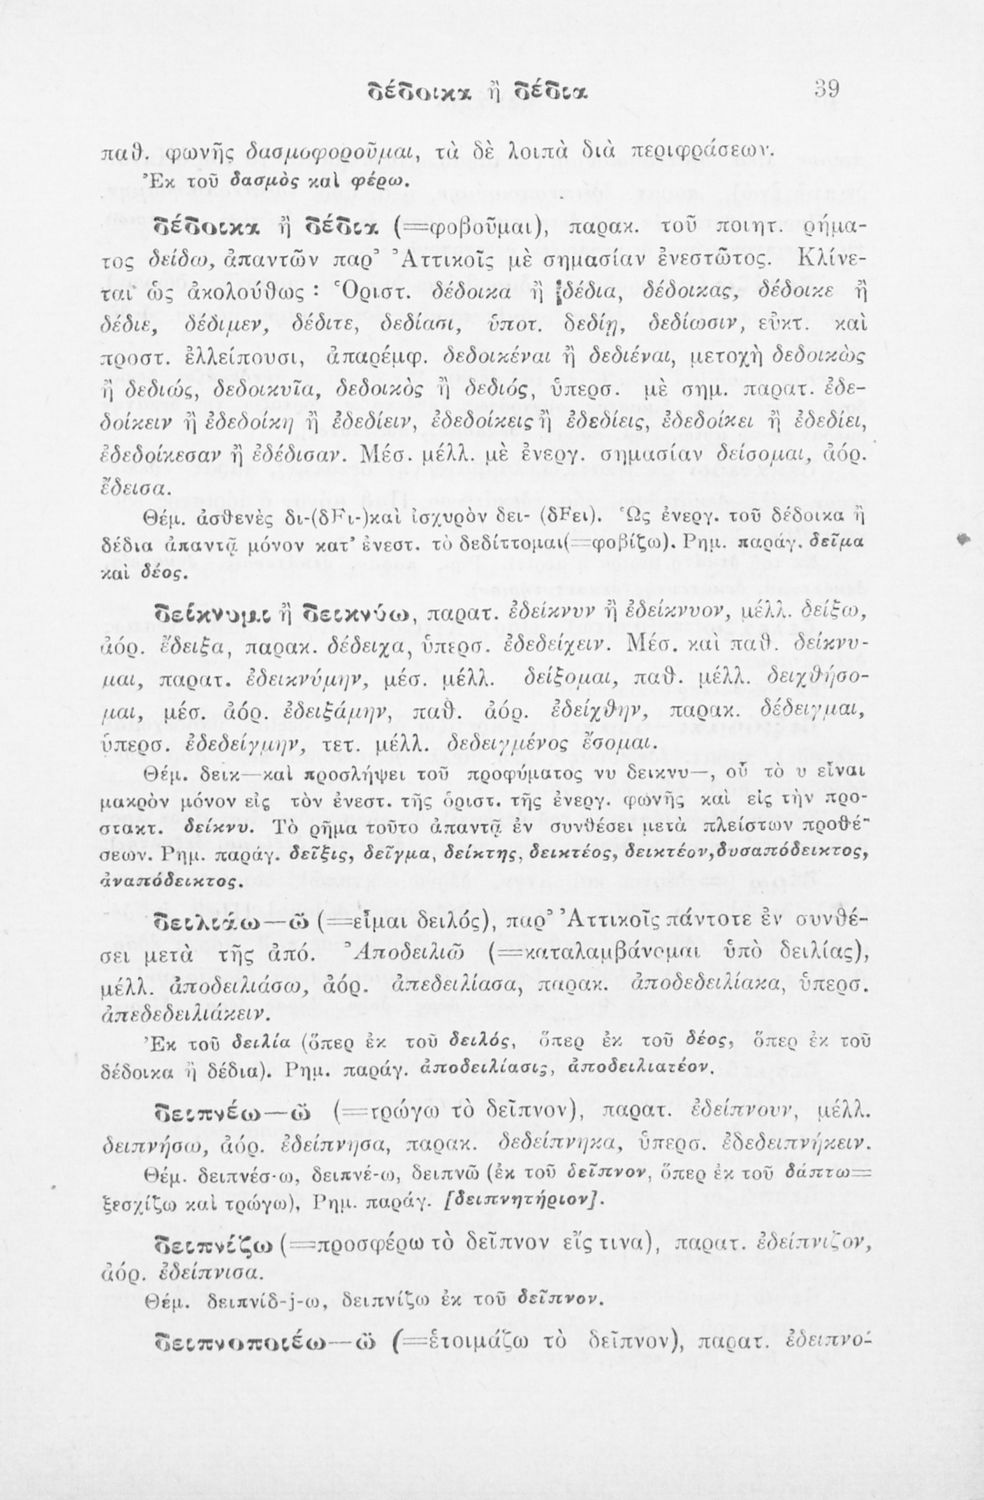 δέδοικα ἢ δέδια 39
παθ. φωνῆς δασμοφοροῦμαι, τὰ δὲ λοιπὰ διὰ περιφράσεων.
Ἐκ τοῦ δασμὸς καὶ φέρω.
δέδοικα ἢ δέδια (=φοβοῦμαι), παρακ. τοῦ ποιητ. ρήμα-
τος δείδω, ἀπαντῶν παρ᾽ Ἀττικοῖς μὲ σημασίαν ἐνεστῶτος. Κλίνε-
ται ὡς ἀκολούθως : Ὁριστ. δέδοικα ἢ δέδια, δέδοικας, δέδοικε ἢ
δέδιε, δέδιμεν, δέδιτε, δεδίασι, ὑποτ. δεδίῃ, δεδίωσιν, εὐκτ. καὶ
προστ. ἐλλείπουσι, ἀπαρέμφ. δεδοικέναι ἢ δεδιέναι, μετοχὴ δεδοικὼς
ἢ δεδιώς, δεδοικυῖα, δεδοικὸς ἢ δεδιός, ὑπερσ. μὲ σημ. παρατ. ἐδε-
δοίκειν ἢ ἐδεδοίκη ἢ ἐδεδίειν, ἐδεδοίκεις ἢ ἐδεδίεις, ἐδεδοίκει ἢ ἐδεδίει,
ἐδεδοίκεσαν ἢ ἐδέδισαν. Μέσ. μέλλ. μὲ ἐνεργ. σημασίαν δείσομαι, ἀόρ.
ἔδεισα.
Θέμ. ἀσθενὲς δι-(δFι-)καὶ ἰσχυρὸν δει- (δFει). Ὡς ἐνεργ. τοῦ δέδοικα ἢ
δέδια ἀπαντᾷ μόνον κατ᾽ ἐνεστ. τὸ δεδίττομαι(=φοβίζω). Ρημ. παράγ. δεῖμα
καὶ δέος.
δείκνυμι ἢ δεικνύω, παρατ. ἐδείκνυν ἢ ἐδείκνυον, μέλλ. δείξω,
ἀόρ. ἔδειξα, παρακ. δέδειχα, ὑπερσ. ἐδεδείχειν. Μέσ. καὶ παθ. δείκνυ-
μαι, παρατ. ἐδεικνύμην, μέσ. μέλλ. δείξομαι, παθ. μέλλ. δειχθήσο-
μαι, μέσ. ἀόρ. ἐδειξάμην, παθ. ἀόρ. ἐδείχθην, παρακ. δέδειγμαι,
ὑπερσ. ἐδεδείγμην, τετ. μέλλ. δεδειγμένος ἔσομαι.
Θέμ. δεικ—καὶ προσλήψει τοῦ προφύματος νυ δεικνυ—, οὗ τὸ υ εἶναι
μακρὸν μόνον εἰς τὸν ἐνεστ. τῆς ὁριστ. τῆς ἐνεργ. φωνῆς καὶ εἰς τὴν προ-
στακτ. δείκνυ. Τὸ ρῆμα τοῦτο ἀπαντᾷ ἐν συνθέσει μετὰ πλείστων προθέ-
σεων. Ρημ. παράγ. δεῖξις, δεῖγμα, δείκτης, δεικτέος, δεικτέον, δυσαπόδεικτος,
ἀναπόδεικτος.
δειλιάω—ῶ (=εἶμαι δειλός), παρ᾽ Ἀττικοῖς πάντοτε ἐν συνθέ-
σει μετὰ τῆς ἀπό. Ἀποδειλιῶ (=καταλαμβάνομαι ὑπὸ δειλίας),
μέλλ. ἀποδειλιάσω, ἀόρ. ἀπεδειλίασα, παρακ. ἀποδεδειλίακα, ὑπερσ.
ἀπεδεδειλιάκειν.
Ἐκ τοῦ δειλία (ὅπερ ἐκ τοῦ δειλός, ὅπερ ἐκ τοῦ δέος, ὅπερ ἐκ τοῦ
δέδοικα ἢ δέδια). Ρημ. παράγ. ἀποδειλίασις, ἀποδειλιατέον.
δειπνέω—ῶ (=τρώγω τὸ δεῖπνον), παρατ. ἐδείπνουν, μέλλ.
δειπνήσω, ἀόρ. ἐδείπνησα, παρακ. δεδείπνηκα, ὑπερσ. ἐδεδειπνήκειν.
Θέμ. δειπνέσ-ω, δειπνέ-ω, δειπνῶ (ἐκ τοῦ δεῖπνον, ὅπερ ἐκ τοῦ δάπτω=
ξεσχίζω καὶ τρώγω), Ρημ. παράγ. [δειπνητήριον].
δειπνίζω (=προσφέρω τὸ δεῖπνον εἴς τινα), παρατ. ἐδείπνιζον,
ἀόρ. ἐδείπνισα.
Θέμ. δειπνίδ-j-ω, δειπνίζω ἐκ τοῦ δεῖπνον.
δειπνοποιέω—ῶ (=ἑτοιμάζω τὸ δεῖπνον), παρατ. ἐδειπνο-